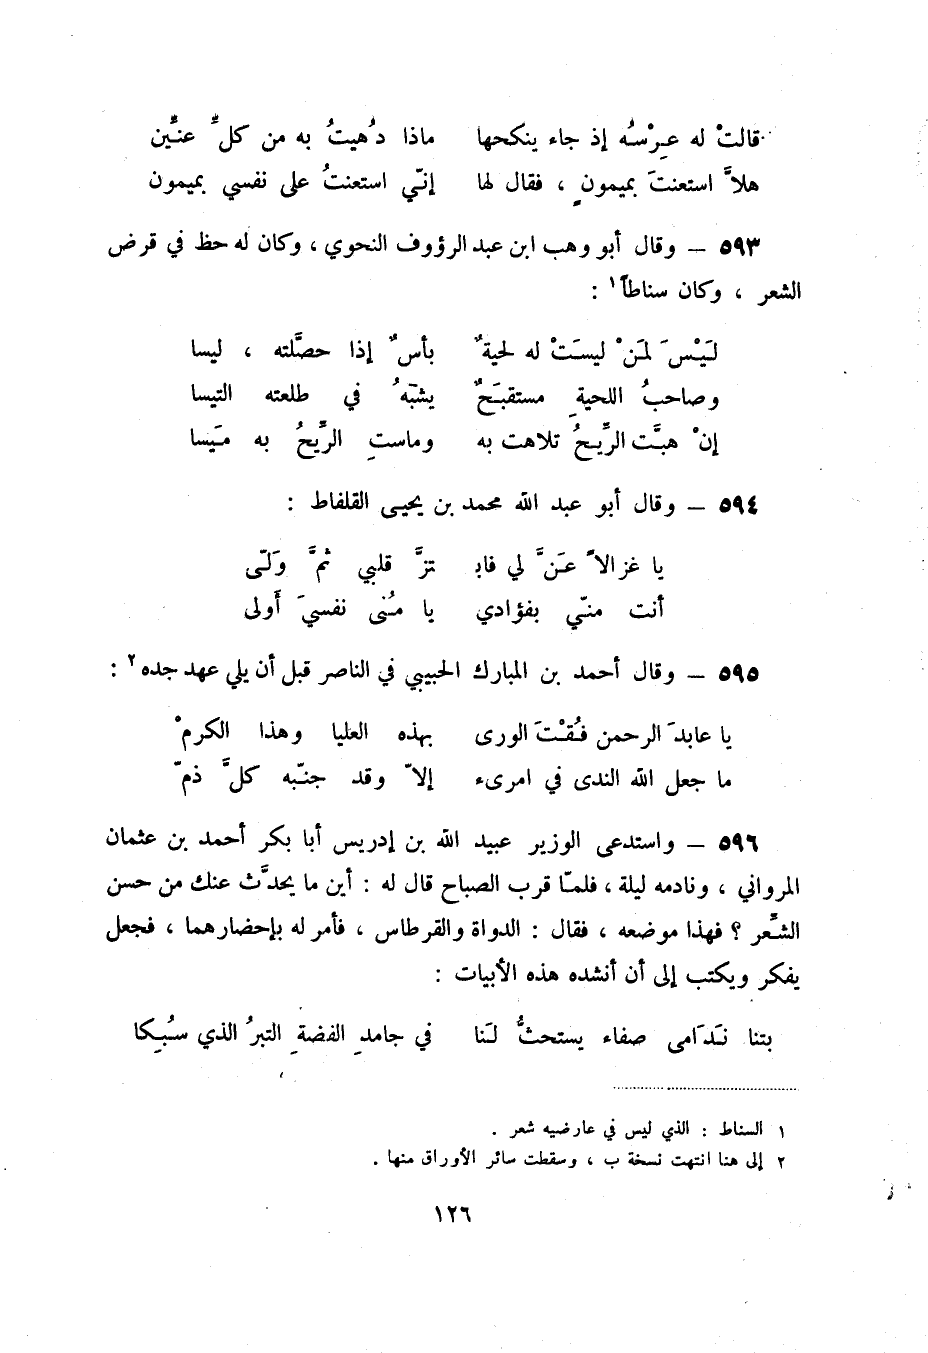 قالتْ له عِرْسُه إذ جاء ينكحها ماذا دُهيتُ به من كلِّ عنِّين
هلاَّ استعنتَ بميمونٍ ، فقال لها إنّي استعنتُ على نفسي بميمون
٥٩٣ – وقال أبو وهب ابن عبد الرؤوف النحوي ، وكان له حظ في قرض
الشعر ، وكان سناطاً١ :
لَيْسَ لمَنْ ليستَْ له لحيةٌ بأسٌ إذا حصَّلته ، ليسا
وصاحبُ اللحيةِ مستقبَحٌ يشبَّهُ في طلعته التيسا
إنْ هبَّت الرِّيحُ تلاهت به وماستِ الرِّيحُ به مَيسا
٥٩٤ – وقال أبو عبد الله محمد بن يحيى القلفاط :
يا غزالاً عَنَّ لي فابـ تزَّ قلبي ثمَّ وَلّى
أنت منّي بفؤادي يا مُنى نفسيَ أَولى
٥٩٥ – وقال أحمد بن المبارك الحبيبي في الناصر قبل أن يلي عهد جده٢ :
يا عابدَ الرحمن فُقْتَ الورى بهذه العليا وهذا الكرمْ
ما جعل الله الندى في امرىء إلاّ وقد جنّبه كلَّ ذمّ
٥٩٦ – واستدعى الوزير عبيد الله بن إدريس أبا بكر أحمد بن عثمان
المرواني ، ونادمه ليلة ، فلمّا قرب الصباح قال له : أين ما يحدَّث عنك من حسن
الشِّعر ؟ فهذا موضعه ، فقال : الدواة والقرطاس ، فأمر له بإحضارهما ، فجعل
يفكر ويكتب إلى أن أنشده هذه الأبيات :
بتنا نَدَامى صفاء يستحثُّ لَنا في جامدِ الفضةِ التبرُ الذي سُبِكا
١ السناط : الذي ليس في عارضيه شعر .
٢ إلى هنا انتهت نسخة ب ، وسقطت سائر الأوراق منها .
١٢٦